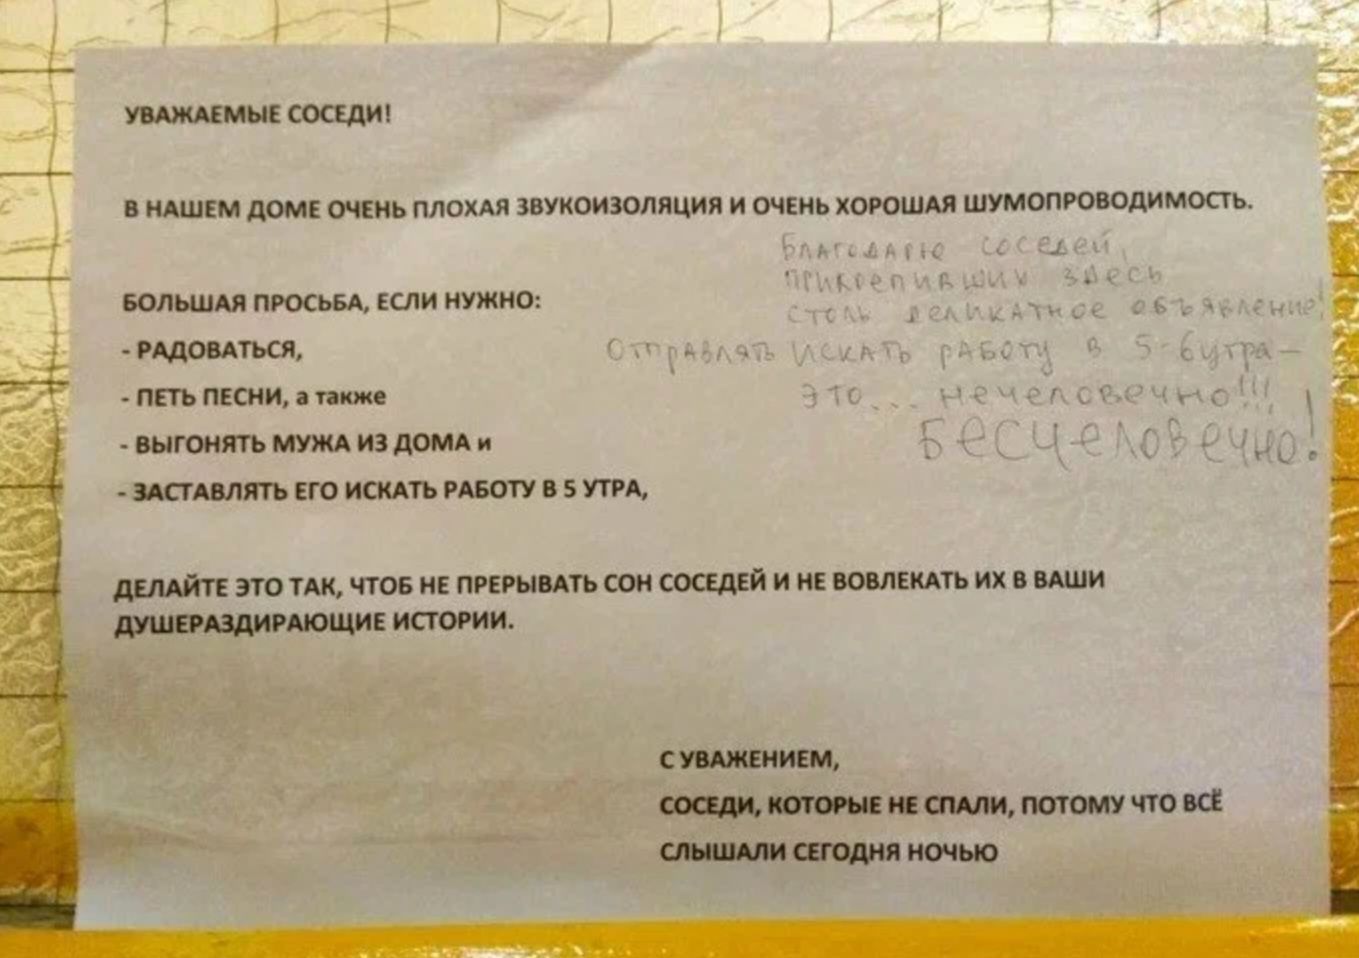 УВАЖАЕМЫЕ СОСЕДИ!
В НАШЕМ ДОМЕ ОЧЕНЬ ПЛОХАЯ ЗВУКОИЗОЛЯЦИЯ И ОЧЕНЬ ХОРОШАЯ ШУМОПРОВОДИМОСТЬ.
БОЛЬШАЯ ПРОСЬБА, ЕСЛИ НУЖНО:
- РАДОВАТЬСЯ,
- ПЕТЬ ПЕСНИ, а также
- ВЫГОНЯТЬ МУЖА ИЗ ДОМА и
- ЗАСТАВЛЯТЬ ЕГО ИСКАТЬ РАБОТУ В 5 УТРА,
Благодарю соседей,
прикрепивших здесь
столь деликатное объявление!
Отправлять искать работу в 5-6 утра –
это... нечеловечно!!!
Бесчеловечно!
ДЕЛАЙТЕ ЭТО ТАК, ЧТОБ НЕ ПРЕРЫВАТЬ СОН СОСЕДЕЙ И НЕ ВОВЛЕКАТЬ ИХ В ВАШИ
ДУШЕРАЗДИРАЮЩИЕ ИСТОРИИ.
С УВАЖЕНИЕМ,
СОСЕДИ, КОТОРЫЕ НЕ СПАЛИ, ПОТОМУ ЧТО ВСЁ
СЛЫШАЛИ СЕГОДНЯ НОЧЬЮ